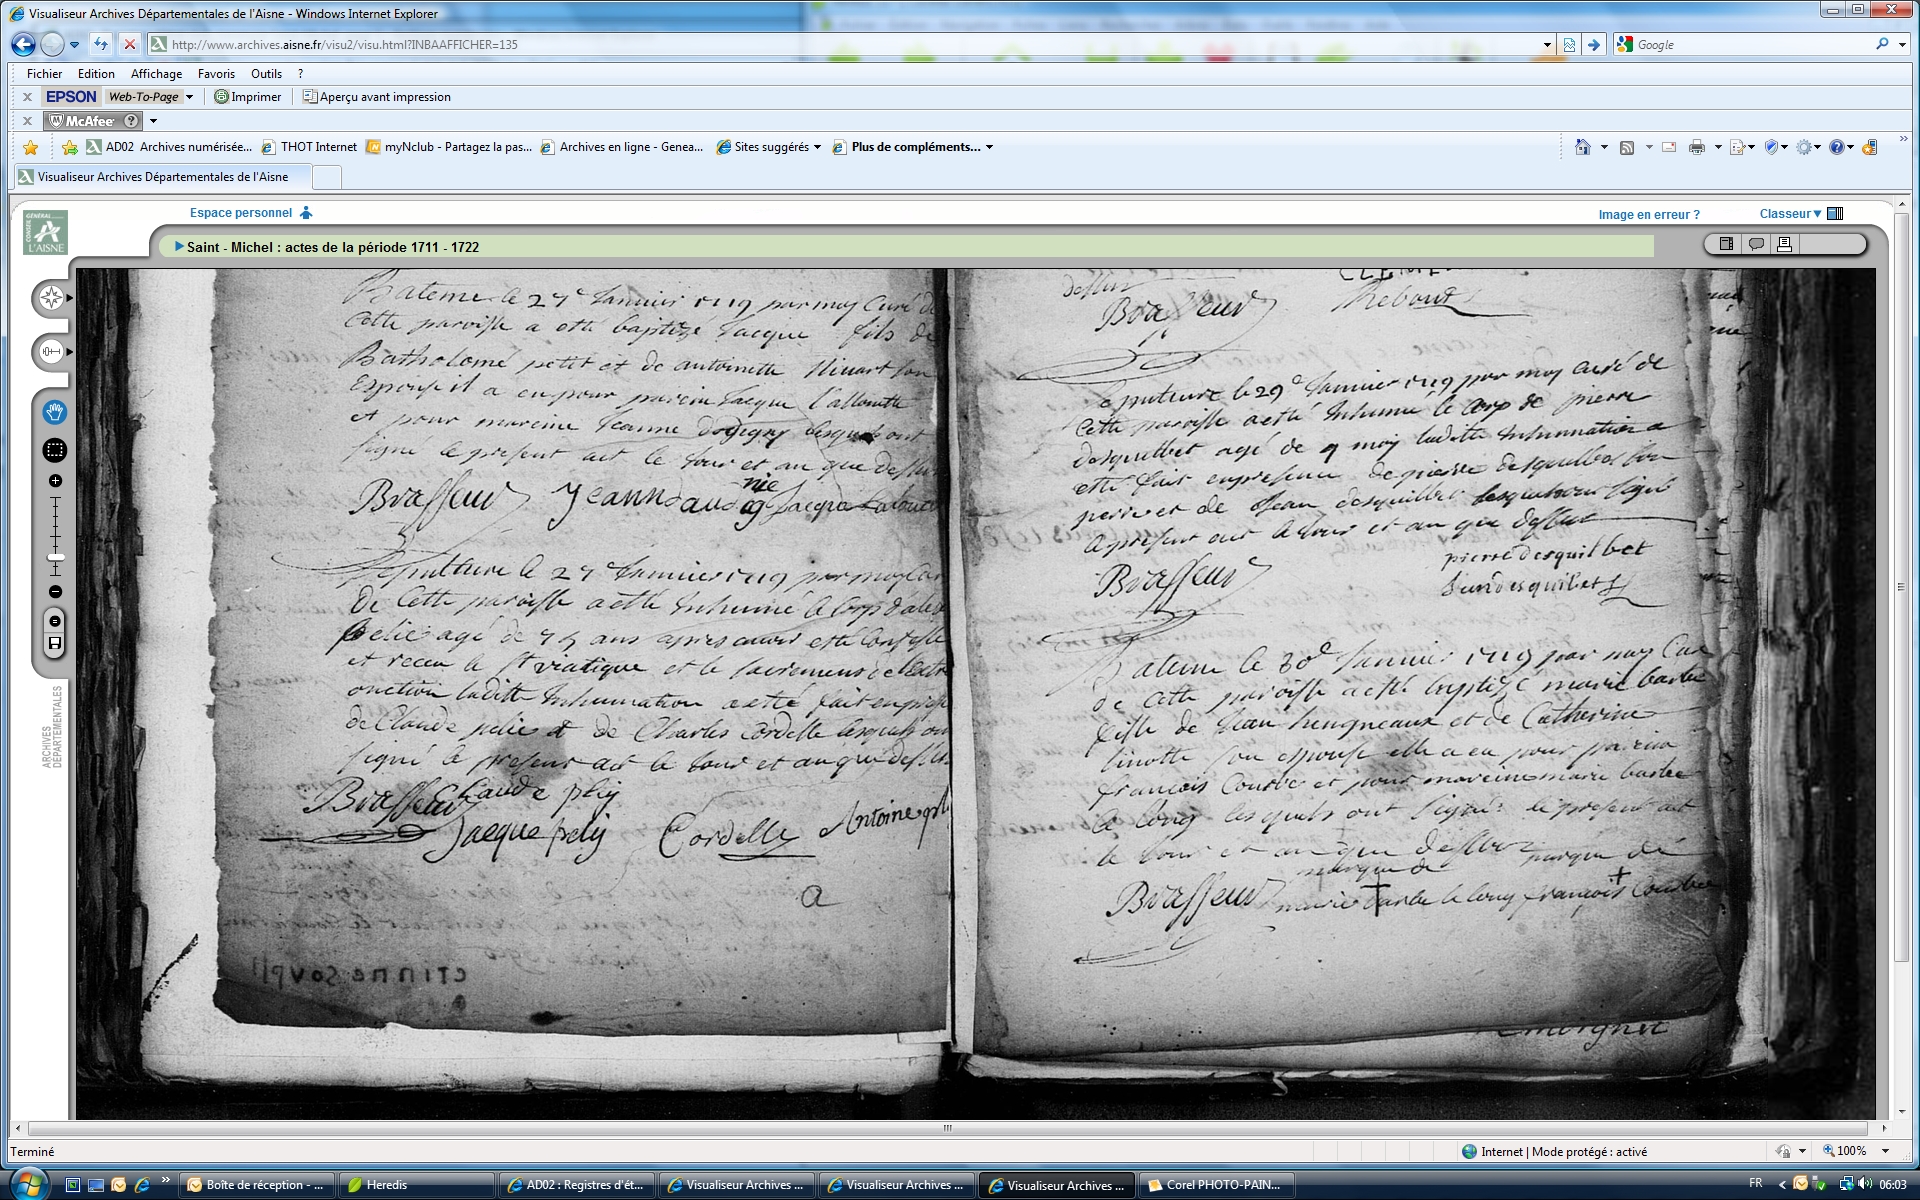 Visualiseur Archives Départementales de l'Aisne - Windows Internet Explorer
http://www.archives.aisne.fr/visu2/visu.html?INBAAFFICHER=135
Google
Fichier Edition Affichage Favoris Outils ?
x EPSON Web-To-Page Imprimer Aperçu avant impression
x McAfee ?
AD02 Archives numérisée... THOT Internet myNclub - Partagez la pas... Archives en ligne - Genea... Sites suggérés Plus de compléments...
Visualiseur Archives Départementales de l'Aisne
Espace personnel Image en erreur ? Classeur
CONSEIL GÉNÉRAL L'AISNE
Saint - Michel : actes de la période 1711 - 1722
ARCHIVES DÉPARTEMENTALES
Bateme le 27e Janvier 1719 par moy Curé de
Cette paroisse a esté baptizé Jacque fils de
Bartholomé petit et de antoinette son
Espouse il a eu pour parein Jacque l'allouette
et pour mareine Jeanne lesquels ont
signé le present act le Jour et an que dessus
Brasseur Jeanne Jacque
Sepulture le 27e Janvier 1719 par moy Curé
de Cette paroisse a esté Inhumé le Corp
pelic agé de ans apres avoir esté Confessé
et receu le St viatique et le sacrement de
onction laditte Inhumation a esté fait en
de Claude pelic et de Charles Cordelle lesquels ont
signé le present act le Jour et an que dessus
Brasseur Claude
Jacque Cordelle Antoine
a
dessus
Brasseur Rebout
Sepulture le 29e Janvier 1719 par moy Curé de
Cette paroisse a esté Inhumé le Corp de pierre
desquilbet agé de 9 moy laditte Inhumation a
esté fait en presence de pierre desquilbet son
pere et de Jean desquilbet lesquels ont signé
le present act le Jour et an que dessus
pierre desquilbet
Brasseur Jean desquilbet
Bateme le 30e Janvier 1719 par moy Curé
de Cette paroisse a esté baptizé marie barbe
fille de Jean et de Catherine
linotte son espouse elle a eu pour parein
françois Courbe et pour mareine marie barbe
le long lesquels ont signé le present act
le Jour et an que dessus
marque de marque de
Brasseur marie barbe le long françois Courbe
Terminé Internet | Mode protégé : activé 100%
Boîte de réception - ... Heredis AD02 : Registres d'ét... Visualiseur Archives ... Visualiseur Archives ... Visualiseur Archives ... Corel PHOTO-PAIN... FR 06:03